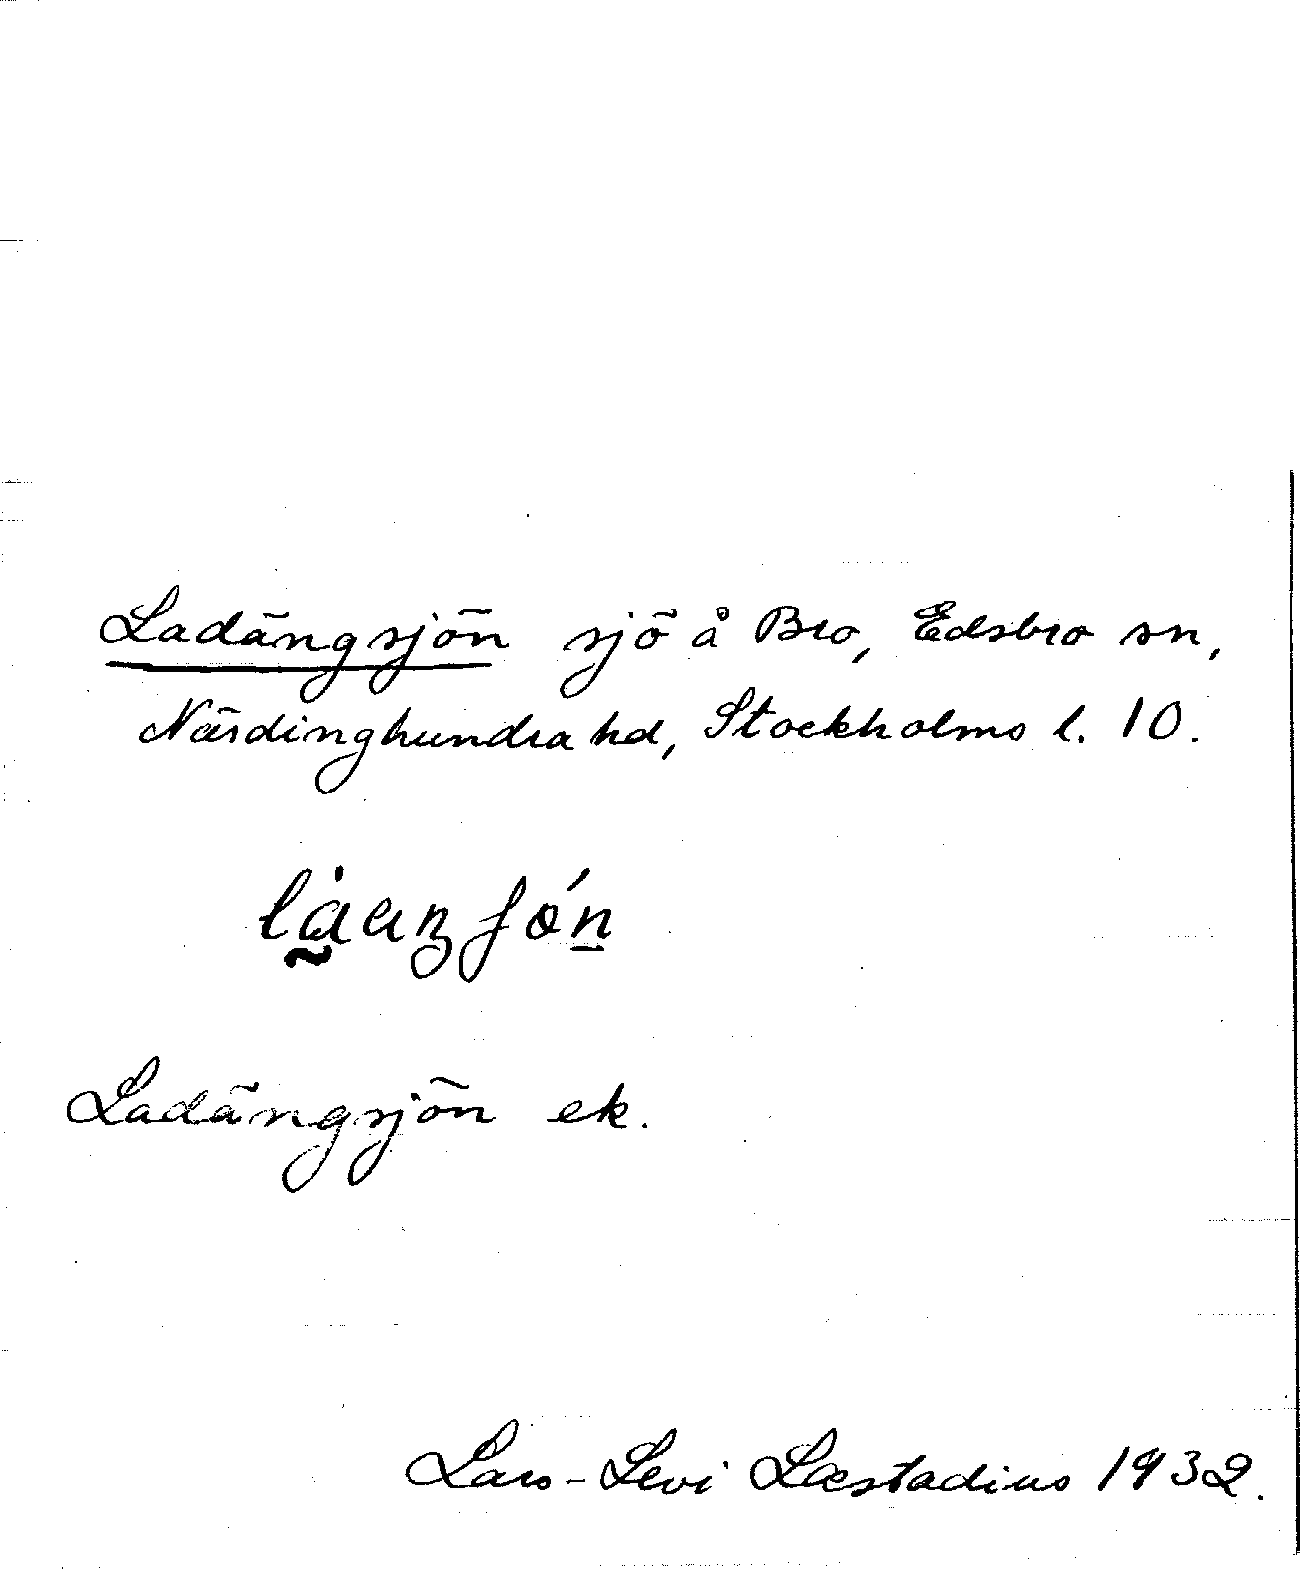 Ladängsjön sjö å Bro, Edsbro sn,
Närdinghundra hd, Stockholms l. 10.
Ladängsjön ek.
Lars-Levi Læstadius 1932.